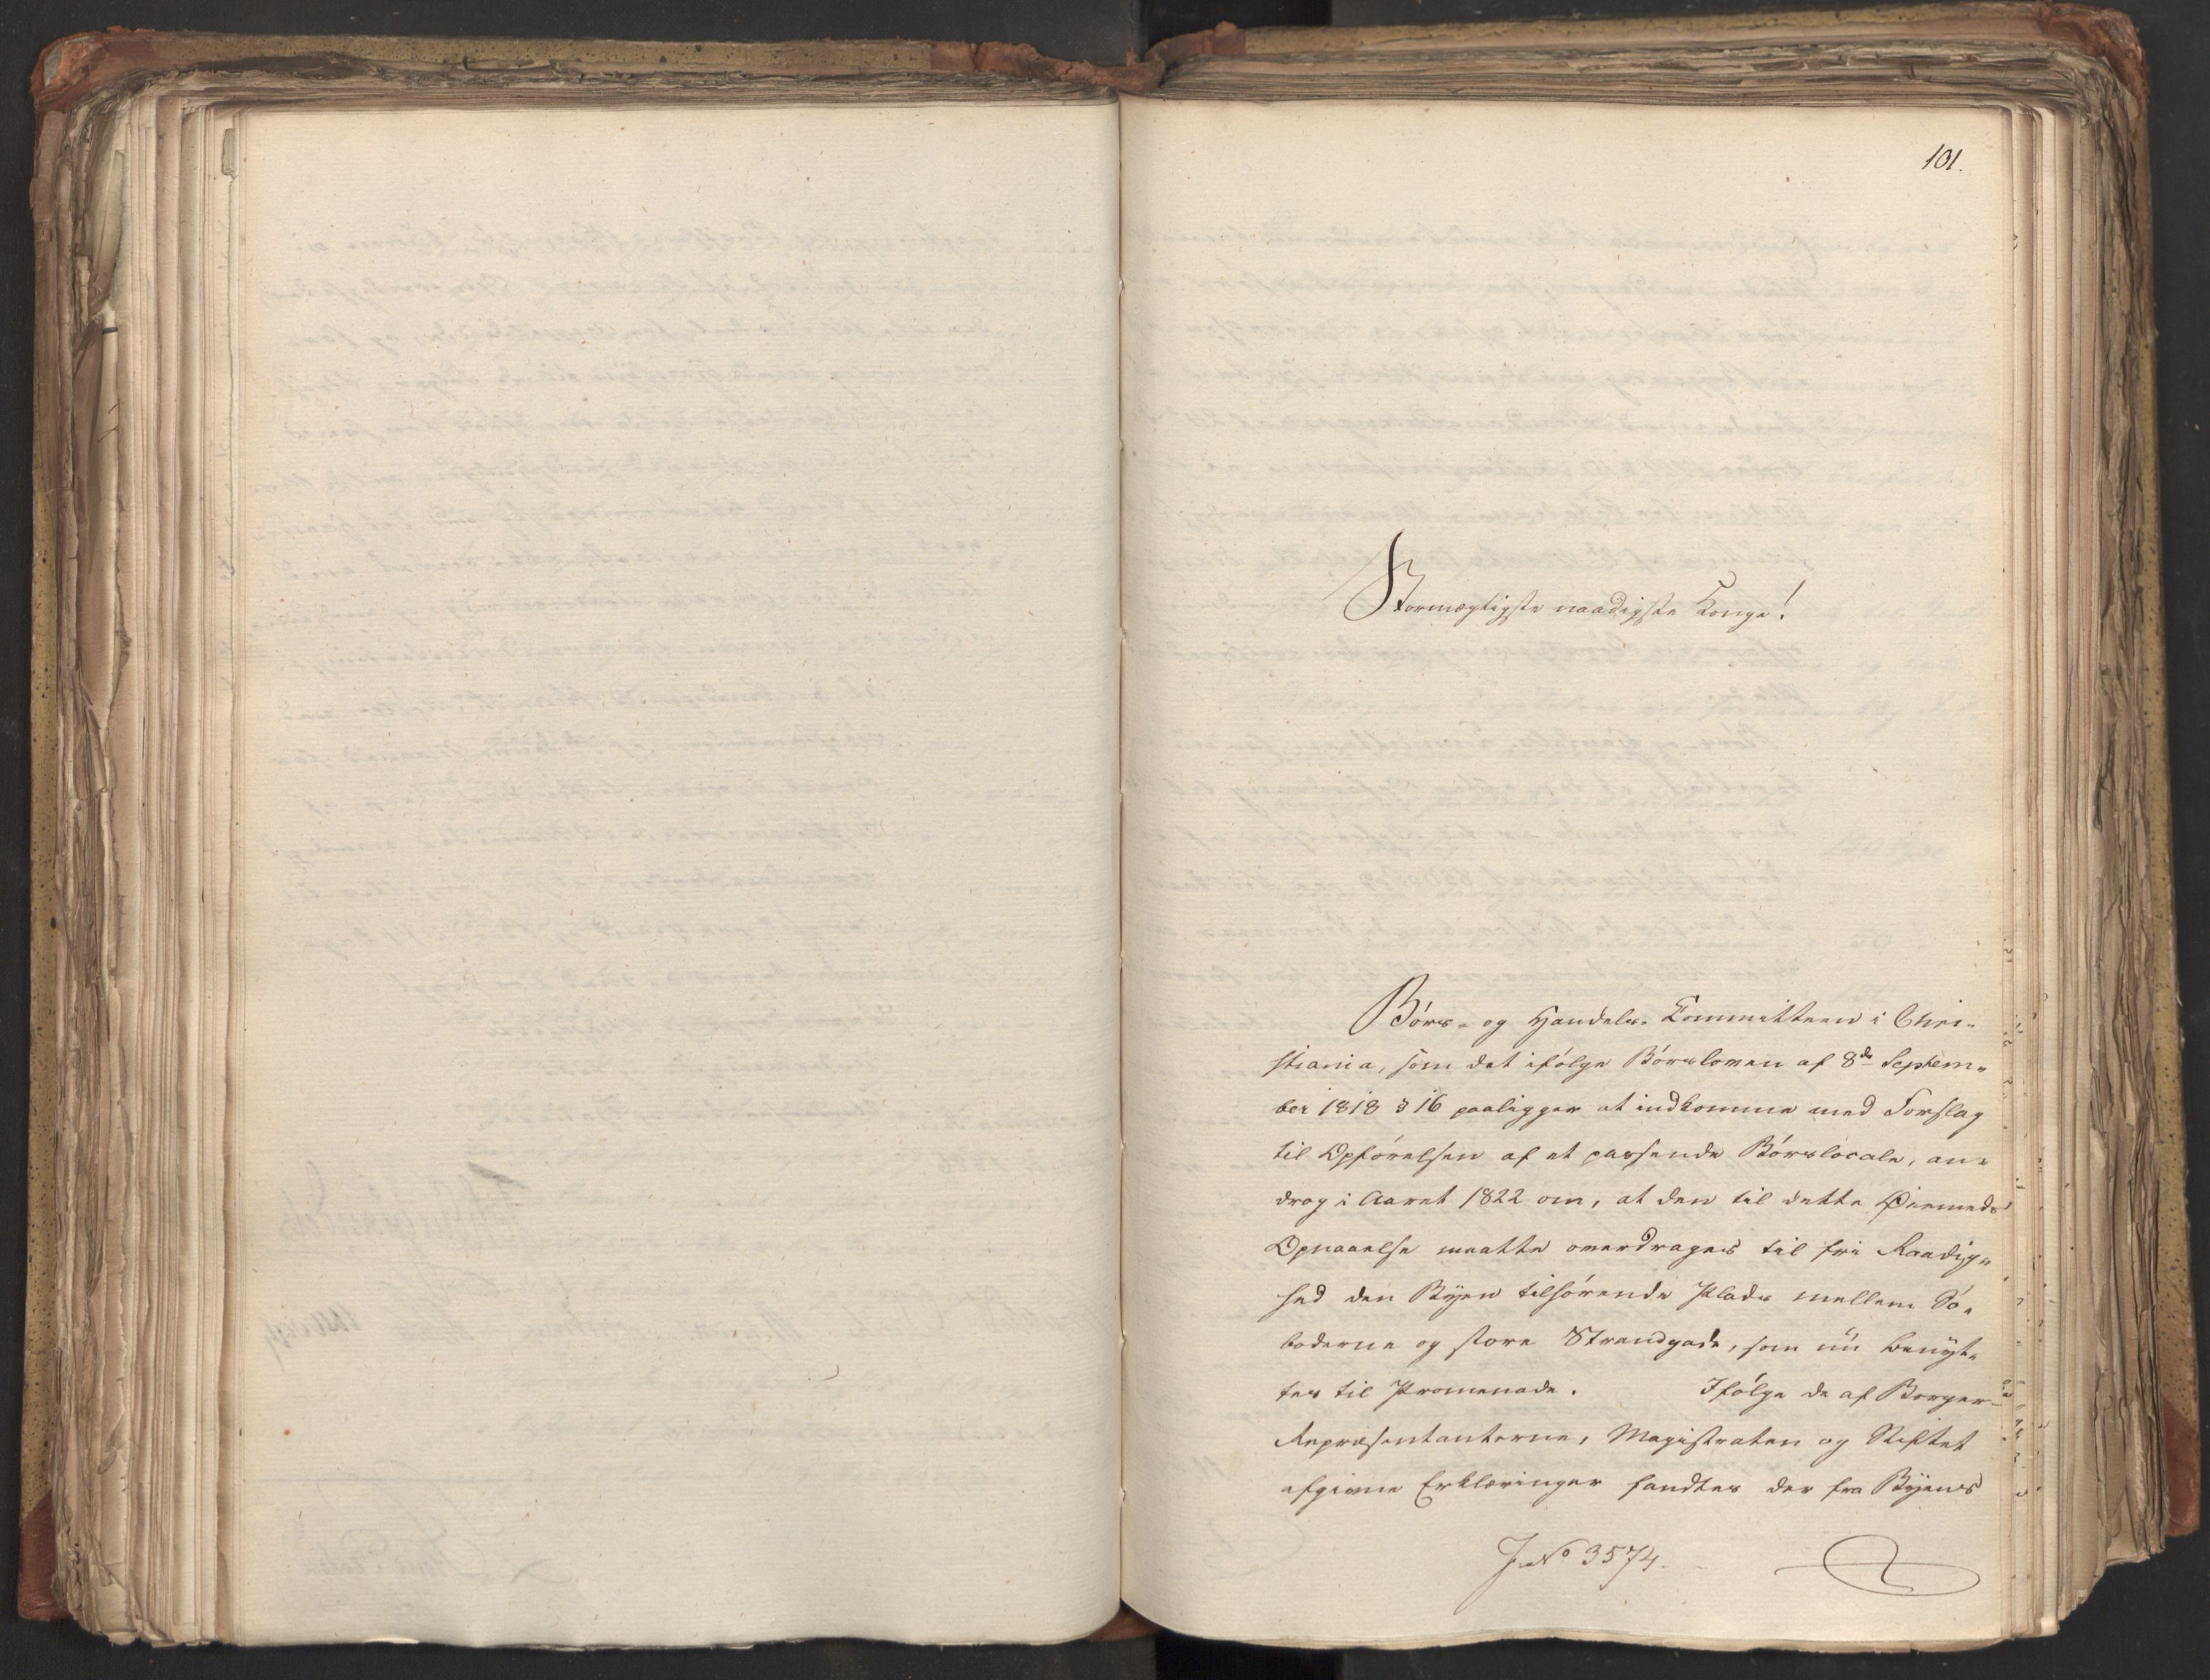 101.
Stormægtigste naadigste Konge!
Börs- og Handels-Committeen i Chri-
stiania, som det ifölge Börsloven af 8de Septem-
ber 1818 § 16 paaligger at indkomme med Forslag
til Opförelsen af et passende Börslocale, an-
drog i Aaret 1822 om, at den til dette Öiemeds
Opnaaelse maatte overdrages til fri Raadig-
hed den Byen tilhörende Plads mellem Sö-
boderne og store Strandgade, som nu benyt-
tes til Promenade. Ifölge de af Borger-
Repræsentanterne, Magistraten og Stiftet
afgivne Erklæringer fandtes der fra Byens
J. No 3574.